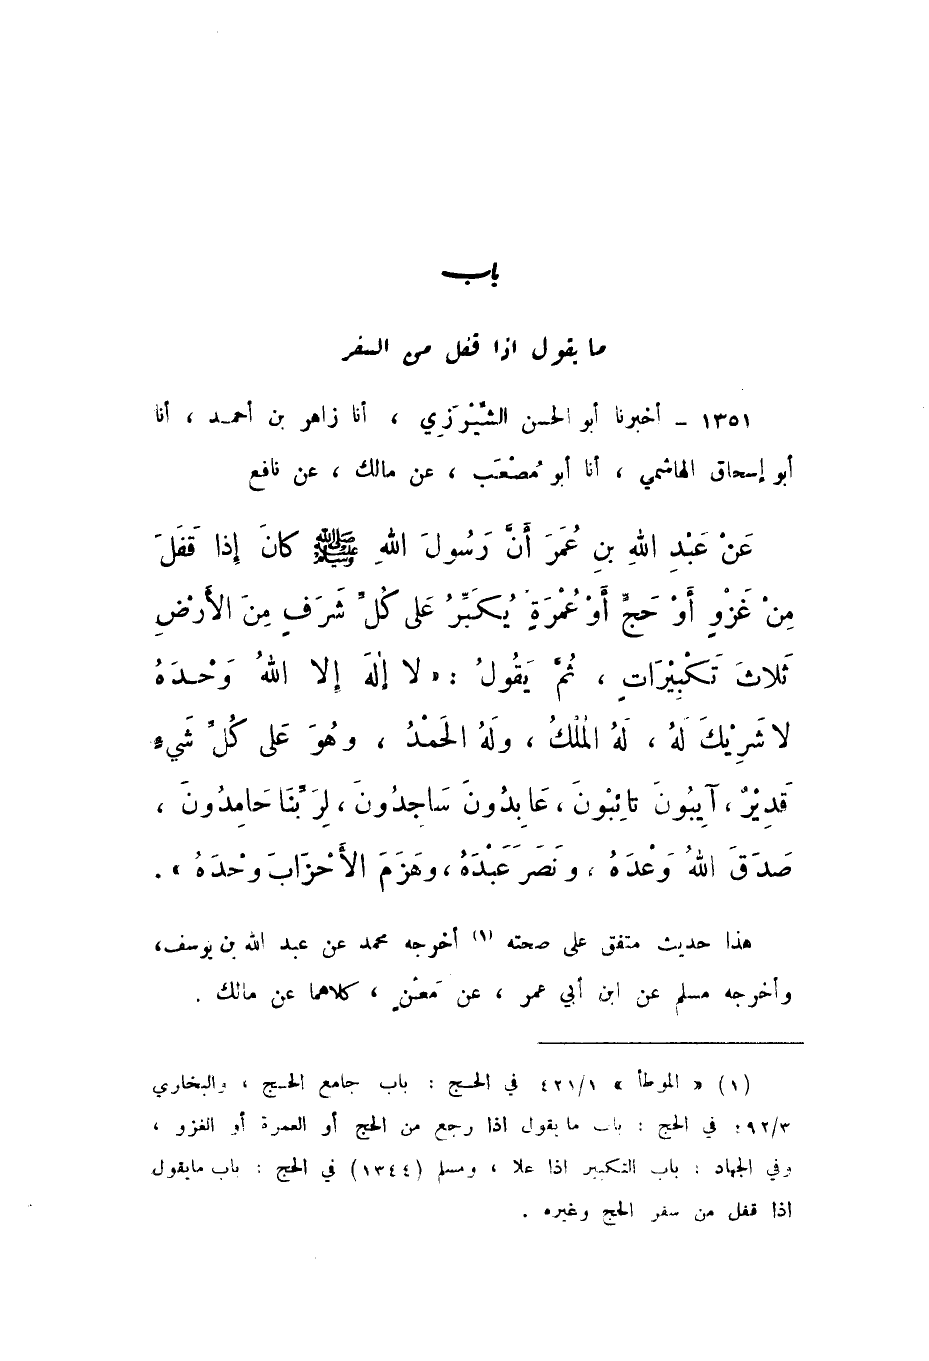 باب
ما يقول اذا قفل من السفر
١٣٥١ – أخبرنا أبو الحسن الشِّيْرَزي ، أنا زاهر بن أحمد ، أنا
أبو إسحاق الهاشمي ، أنا أبو مُصْعَب ، عن مالك ، عن نافع
عَنْ عَبْدِ اللهِ بنِ عُمَرَ أَنَّ رَسُولَ اللهِ ﷺ كانَ إِذا قَفَلَ
مِنْ غَزْوٍ أَوْ حَجٍّ أَوْ عُمْرَةٍ يُكَبِّرُ عَلى كُلِّ شَرَفٍ مِنَ الأَرْضِ
ثَلاثَ تَكْبِيْرَاتٍ ، ثُمَّ يَقُولُ : « لا إلٰهَ إِلا اللهُ وَحْدَهُ
لا شَرِيْكَ لَهُ ، لَهُ المُلْكُ ، ولَهُ الحَمْدُ ، وهُوَ عَلى كُلِّ شَيءٍ
قَدِيْرٌ ، آيِبُونَ تائِبُونَ ، عَابِدُونَ سَاجِدُونَ ، لِرَبِّنَا حَامِدُونَ ،
صَدَقَ اللهُ وَعْدَهُ ، ونَصَرَ عَبْدَهُ ، وهَزَمَ الأَحْزَابَ وحْدَهُ » .
هذا حديث متفق على صحته (١) أخرجه محمد عن عبد الله بن يوسف،
وأخرجه مسلم عن ابن أبي عمر ، عن مَعْنٍ ، كلاهما عن مالك .
(١) « الموطأ » ٤٢١/١ في الحج : باب جامع الحج ، والبخاري
٤٩٢/٣ في الحج : باب ما يقول اذا رجع من الحج أو العمرة أو الغزو ،
وفي الجهاد : باب التكبير اذا علا ، ومسلم (١٣٤٤) في الحج : باب مايقول
اذا قفل من سفر الحج وغيره .